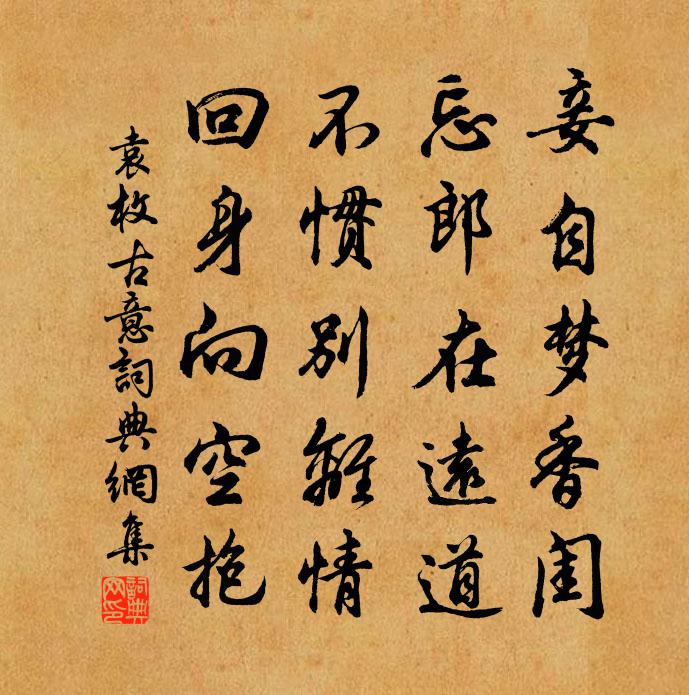 妾自梦香闺
忘郎在遠道
不慣別離情
回身向空抱
袁枚古意詞典網集
詞典网印